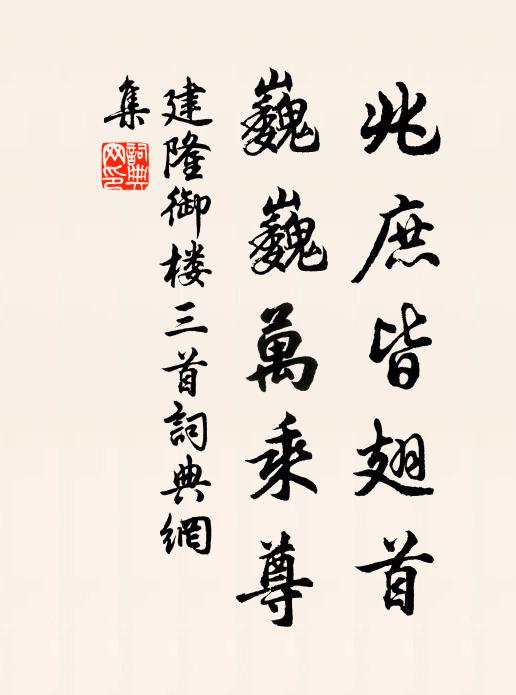 兆庶皆翅首
巍巍萬乘尊
建隆御楼三首詞典網
集
詞典網印